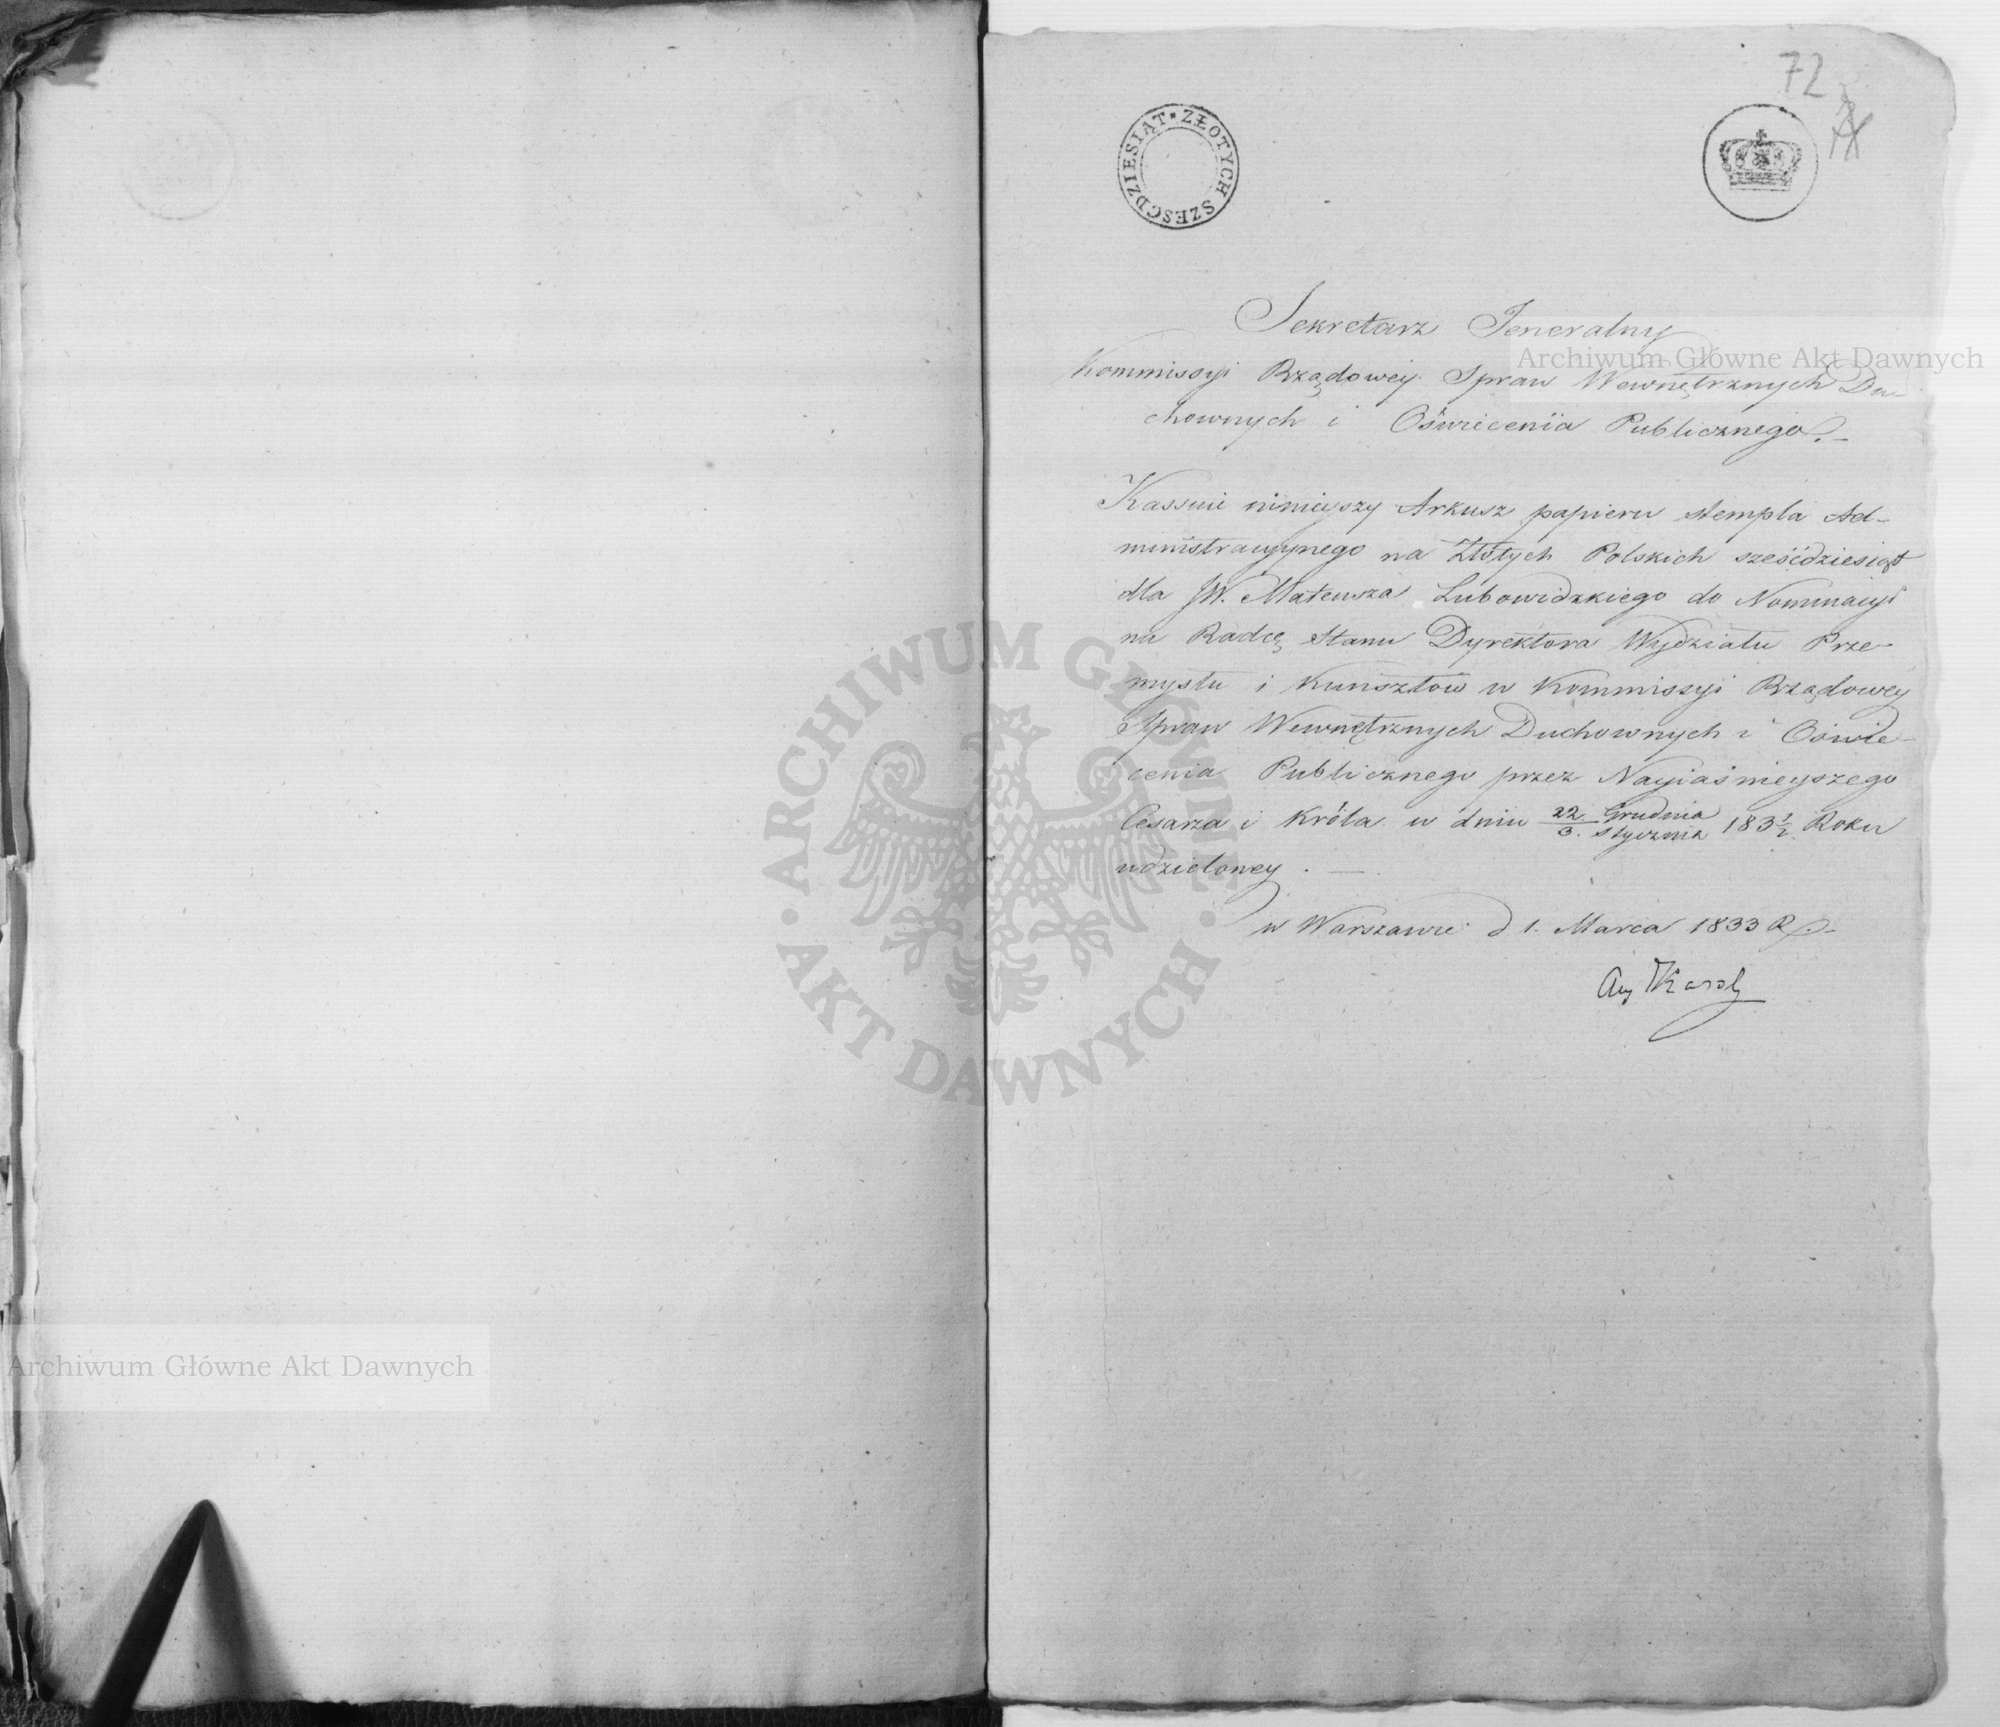 72
ZŁOTYCH SZEŚĆDZIESIĄT
Sekretarz Jeneralny
Kommissyi Rządowey Spraw Wewnętrznych Du-
chownych i Oświecenia Publicznego.-
Kassuie ninieyszy Arkusz papieru stempla Ad-
ministracyynego na Złotych Polskich sześćdziesiąt
dla JW. Mateusza Lubowidzkiego do Nominacyi
na Radcę Stanu Dyrektora Wydziału Prze-
mysłu i Kunsztów w Kommissyi Rządowey
Spraw Wewnętrznych Duchownych i Oświe-
cenia Publicznego przez Nayiaśnieyszego
Cesarza i Króla w dniu 22/3. Grudnia/Stycznia 183 1/2 Roku
udzieloney. —
w Warszawie d 1. Marca 1833 R.-
Archiwum Główne Akt Dawnych
Archiwum Główne Akt Dawnych
ARCHIWUM GŁÓWNE
AKT DAWNYCH